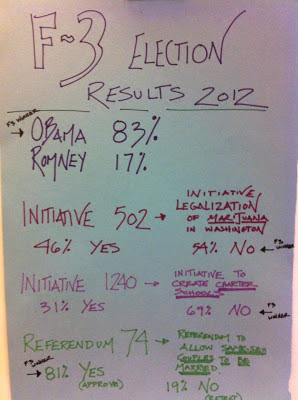 F~3 ELECTION
RESULTS 2012
F3 WINNER → OBAMA 83%
ROMNEY 17%
INITIATIVE 502 → INITIATIVE LEGALIZATION OF MARIJUANA IN WASHINGTON
46% YES 54% NO ← F3 WINNER
INITIATIVE 1240 → INITIATIVE TO CREATE CHARTER SCHOOLS
31% YES 69% NO ← F3 WINNER
REFERENDUM 74 → REFERENDUM TO ALLOW SAME-SEX COUPLES TO BE MARRIED
F3 WINNER → 81% YES (APPROVE) 19% NO (REJECT)